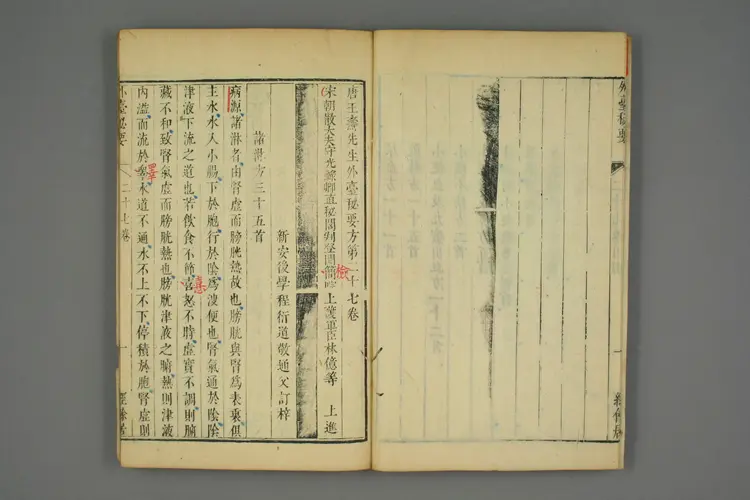 外臺祕要
唐王燾先生外臺祕要方第二十七卷
宋朝散大夫守光祿卿直祕閣判登聞簡院上護軍臣林億等 上進
檢
新安後學程衍道敬通父訂梓
諸淋方三十五首
病源諸淋者由腎虛而膀胱熱故也膀胱與腎為表裏俱
主水水入小腸下於胞行於陰為溲便也腎氣通於陰陰
津液下流之道也若飲食不節喜怒不時虛實不調則腑
藏不和致腎氣虛而膀胱熱也膀胱津液之腑熱則津液
內溢而流於睾水道不通水不上不下停積於胞腎虛則
外臺祕要 二十七卷 一